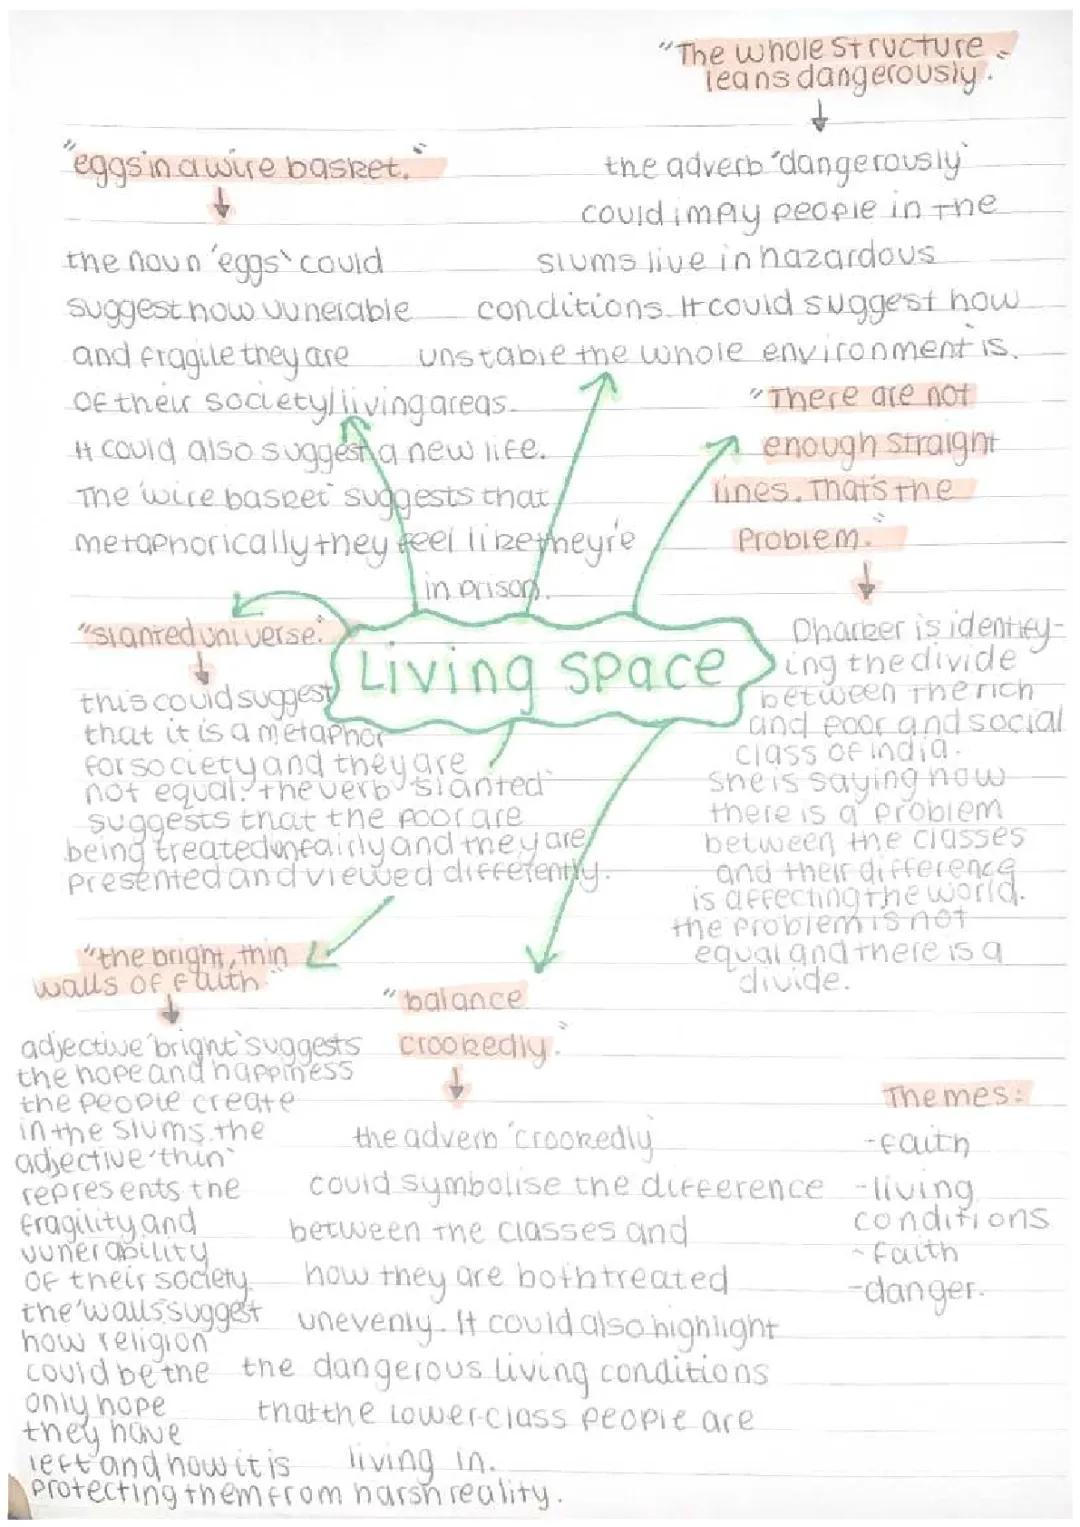 "The whole structure
leans dangerously."
the adverb 'dangerously'
could imply people in the
slums live in hazardous
conditions. It could suggest how
unstable the whole environment is.
"eggs in a wire basket."
the noun 'eggs' could
suggest how vunerable
and fragile they are
of their society/living areas.
It could also suggest a new life.
The 'wire basket' suggests that
metaphorically they feel like they're
in prison.
"There are not
enough straight
lines. That's the
Problem."
Dharker is identify-
ing the divide
between the rich
and poor and social
class of india.
she is saying how
there is a problem
between the classes
and their difference
is affecting the world.
the problem is not
equal and there is a
divide.
Living space
"slanted universe."
this could suggest
that it is a metaphor
for society and they are
not equal. the verb 'slanted'
suggests that the poor are
being treated unfairly and they are
presented and viewed differently.
"the bright, thin
walls of faith."
adjective 'bright' suggests
the hope and happiness
the people create
in the slums. the
adjective 'thin'
represents the
fragility and
vunerability
of their society.
the 'walls' suggest
how religion
could be the
only hope
they have
left and how it is
protecting them from harsh reality.
"balance
crookedly."
the adverb 'crookedly'
could symbolise the difference
between the classes and
how they are both treated
unevenly. It could also highlight
the dangerous living conditions
that the lower-class people are
living in.
Themes:
-faith
-living
conditions
-faith
-danger.